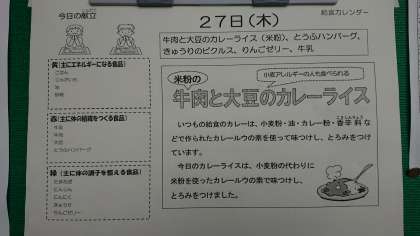 今日の献立
給食カレンダー
27日(木)
牛肉と大豆のカレーライス(米粉)、とうふハンバーグ、
きゅうりのピクルス、りんごゼリー、牛乳
黄(主にエネルギーになる食品)
ごはん
じゃがいも
油
砂糖
赤(主に体の組織をつくる食品)
牛乳
牛肉
大豆
とうふハンバーグ
緑(主に体の調子を整える食品)
たまねぎ
にんじん
にんにく
きゅうり
りんごゼリー
小麦アレルギーの人も食べられる
米粉の
牛肉と大豆のカレーライス
いつもの給食のカレーは、小麦粉・油・カレー粉・香辛料な
どで作られたカレールウの素を使って味つけし、とろみをつけ
ています。
今日のカレーライスは、小麦粉の代わりに
米粉を使ったカレールウの素で味つけし、
とろみをつけました。